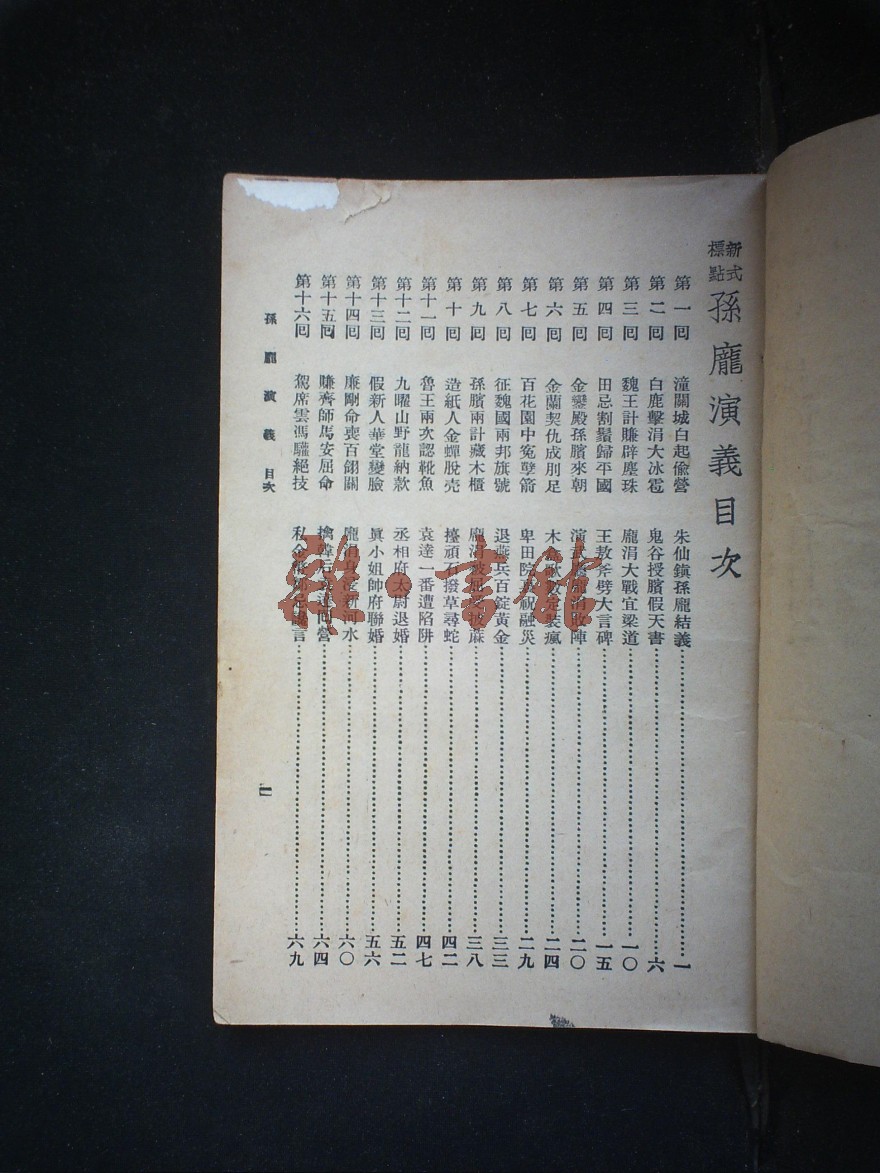 新式標點 孫龐演義目次
第一回 潼關城白起偷營 朱仙鎮孫龐結義 一
第二回 白鹿擊涓大冰雹 鬼谷授臏假天書 六
第三回 魏王計賺辟塵珠 龐涓大戰宜梁道 一〇
第四回 田忌割鬚歸平國 王敖斧劈大言碑 一五
第五回 金鑾殿孫臏來朝 演武 龐涓敗陣 二〇
第六回 金蘭契仇成刖足 木 裝瘋 二四
第七回 百花園中冤孽箭 卑田院 祝融災 二九
第八回 征魏國兩邦旗號 退燕兵百錠黃金 三三
第九回 孫臏兩計藏木櫃 龐涓被 披蔴 三八
第十回 造紙人金蟬脫壳 擡頑石撥草尋蛇 四二
第十一回 魯王兩次認靴魚 袁達一番遭陷阱 四七
第十二回 九曜山野龍納款 丞相府太尉退婚 五二
第十三回 假新人華堂變臉 眞小姐帥府聯婚 五六
第十四回 廉剛命喪百翎關 龐涓 水 六〇
第十五回 賺齊師馬安屈命 擒 營 六四
第十六回 駕席雲馮驩絕技 私金 言 六九
孫龐演義 目次
一
雜·書館